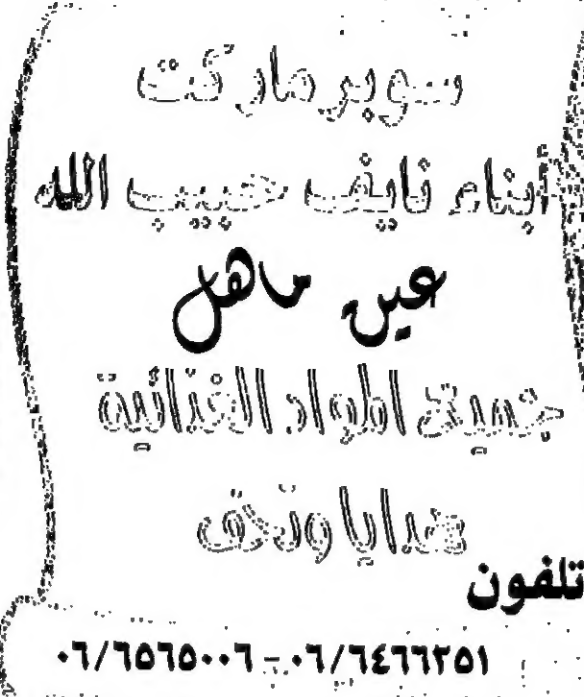 سوبر ماركت
أبناء نايف حبيب الله
عين ماهل
جميع المواد الغذائية
هدايا وتحف
تلفون
٠٦/٦٥٦٥٠٠٦ - ٠٦/٦٤٦٦٢٥١